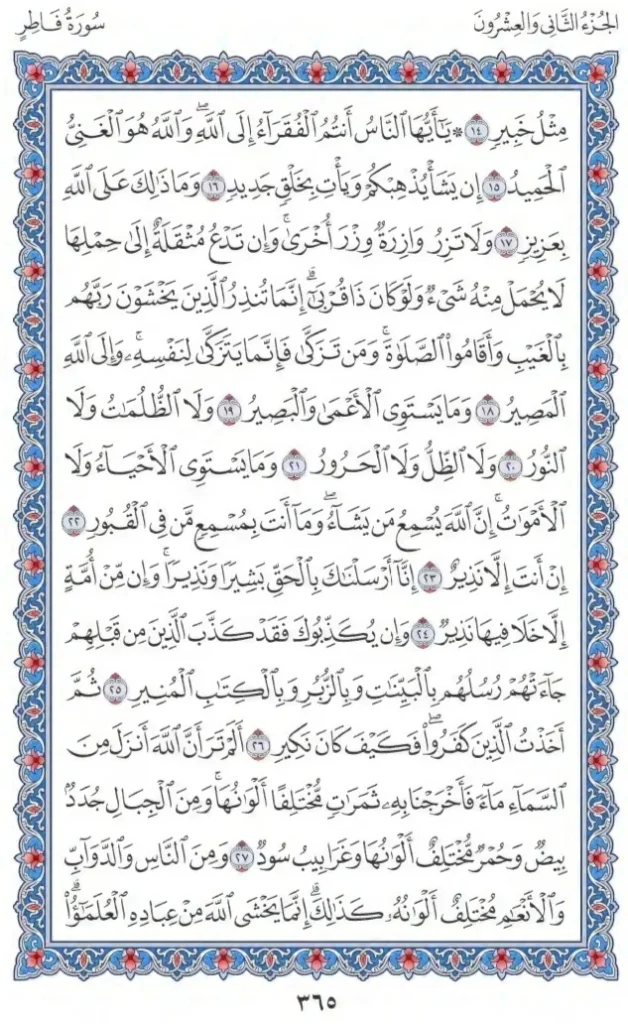 الجُزْءُ الثَّانِي وَالعِشْرُونَ
سُورَةُ فَاطِرٍ
مِثْلُ خَبِيرٍ ١٤ ۞ يَٰٓأَيُّهَا ٱلنَّاسُ أَنتُمُ ٱلْفُقَرَآءُ إِلَى ٱللَّهِۖ وَٱللَّهُ هُوَ ٱلْغَنِىُّ
ٱلْحَمِيدُ ١٥ إِن يَشَأْ يُذْهِبْكُمْ وَيَأْتِ بِخَلْقٍ جَدِيدٍ ١٦ وَمَا ذَٰلِكَ عَلَى ٱللَّهِ
بِعَزِيزٍ ١٧ وَلَا تَزِرُ وَازِرَةٌ وِزْرَ أُخْرَىٰۚ وَإِن تَدْعُ مُثْقَلَةٌ إِلَىٰ حِمْلِهَا
لَا يُحْمَلْ مِنْهُ شَىْءٌ وَلَوْ كَانَ ذَا قُرْبَىٰٓۗ إِنَّمَا تُنذِرُ ٱلَّذِينَ يَخْشَوْنَ رَبَّهُم
بِٱلْغَيْبِ وَأَقَامُوا۟ ٱلصَّلَوٰةَۚ وَمَن تَزَكَّىٰ فَإِنَّمَا يَتَزَكَّىٰ لِنَفْسِهِۦۚ وَإِلَى ٱللَّهِ
ٱلْمَصِيرُ ١٨ وَمَا يَسْتَوِى ٱلْأَعْمَىٰ وَٱلْبَصِيرُ ١٩ وَلَا ٱلظُّلُمَٰتُ وَلَا
ٱلنُّورُ ٢٠ وَلَا ٱلظِّلُّ وَلَا ٱلْحَرُورُ ٢١ وَمَا يَسْتَوِى ٱلْأَحْيَآءُ وَلَا
ٱلْأَمْوَٰتُۚ إِنَّ ٱللَّهَ يُسْمِعُ مَن يَشَآءُۖ وَمَآ أَنتَ بِمُسْمِعٍ مَّن فِى ٱلْقُبُورِ ٢٢
إِنْ أَنتَ إِلَّا نَذِيرٌ ٢٣ إِنَّآ أَرْسَلْنَٰكَ بِٱلْحَقِّ بَشِيرًا وَنَذِيرًاۚ وَإِن مِّنْ أُمَّةٍ
إِلَّا خَلَا فِيهَا نَذِيرٌ ٢٤ وَإِن يُكَذِّبُوكَ فَقَدْ كَذَّبَ ٱلَّذِينَ مِن قَبْلِهِمْ
جَآءَتْهُمْ رُسُلُهُم بِٱلْبَيِّنَٰتِ وَبِٱلزُّبُرِ وَبِٱلْكِتَٰبِ ٱلْمُنِيرِ ٢٥ ثُمَّ
أَخَذْتُ ٱلَّذِينَ كَفَرُوا۟ۖ فَكَيْفَ كَانَ نَكِيرِ ٢٦ أَلَمْ تَرَ أَنَّ ٱللَّهَ أَنزَلَ مِنَ
ٱلسَّمَآءِ مَآءً فَأَخْرَجْنَا بِهِۦ ثَمَرَٰتٍ مُّخْتَلِفًا أَلْوَٰنُهَاۚ وَمِنَ ٱلْجِبَالِ جُدَدٌۢ
بِيضٌ وَحُمْرٌ مُّخْتَلِفٌ أَلْوَٰنُهَا وَغَرَابِيبُ سُودٌ ٢٧ وَمِنَ ٱلنَّاسِ وَٱلدَّوَآبِّ
وَٱلْأَنْعَٰمِ مُخْتَلِفٌ أَلْوَٰنُهُۥ كَذَٰلِكَۗ إِنَّمَا يَخْشَى ٱللَّهَ مِنْ عِبَادِهِ ٱلْعُلَمَٰٓؤُا۟ۗ
٣٦٥